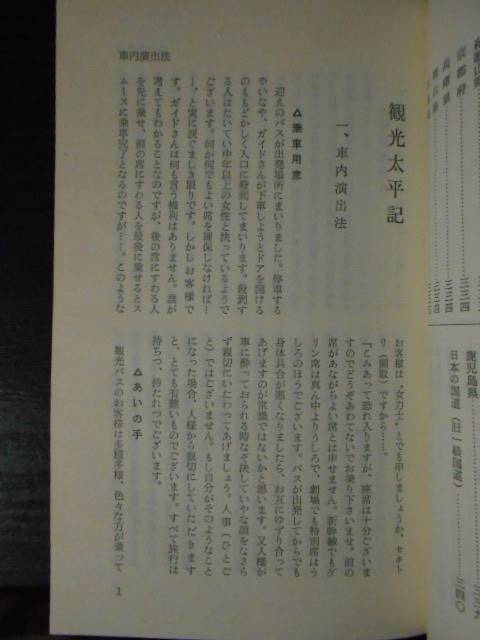 車内演出法
観光太平記
一、車内演出法
△乗車用意
迎えのバスが出発場所にまいりました。停車する
やいなや、ガイドさんが下車しようとドアを開ける
のももどかしく入口に殺到してまいります。殺到す
る人はたいてい中年以上の女性と決っているようで
ございます。何が何でもよい席を確保しなければ…
…、と実に涙ぐましき限りです。しかしお客様で
す。ガイドさんは何も言う権利はありません。誰が
考えてもわかることなのですが、後の席にすわる人
を先に乗せ、前の席にすわる人を最後に乗せるとス
ムースに乗車完了となるのですが…。このような
お客様は〝女力士〟とでも申しましょうか、セキト
リ（関取）ですから……。
「こみあって恐れ入りますが、座席は十分ございま
すのでどうぞあわてないでお乗り下さいませ。前の
席があながちよい席とは申せません。新幹線でもグ
リン席は真ん中よりうしろで、劇場でも特別席はう
しろのほうでございます。バスが出発してからでも
身体具合が悪くなりましたら、お互にゆずり合って
あげますのが常識ではないかと思います。又人様が
車に酔っておられる時など決していやな顔をなさら
ず親切にいたわってあげましょう。人事（ひとご
と）ではございません。もし自分がそのようなこと
になった場合、人様から親切にしていただきます
と、とても有難いものでございます。すべて旅行は
持ちつ、持たれつでございます。
△あいの手
観光バスのお客様は多種多様、色々な方が乗って
1
京都府
兵庫県
三三四
三三四
三三四
鹿児島県
日本の国道（旧一級国道）
三三九
三四〇